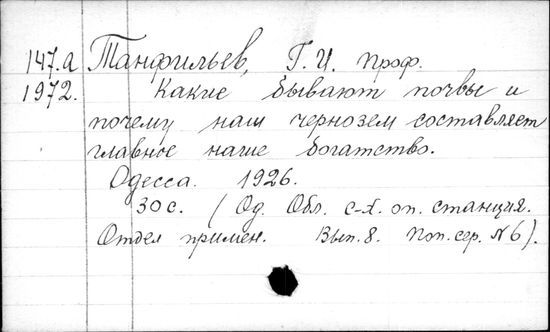 147.а Танфильев, Г. И. проф.
1972. Какие бывают почвы и
почему наш чернозем составляет
главное наше богатство.
Одесса. 1926.
30 с. (Од. Обл. с-х. оп. станция.
Отдел примен. Вып. 8. Поп. сер. №6).